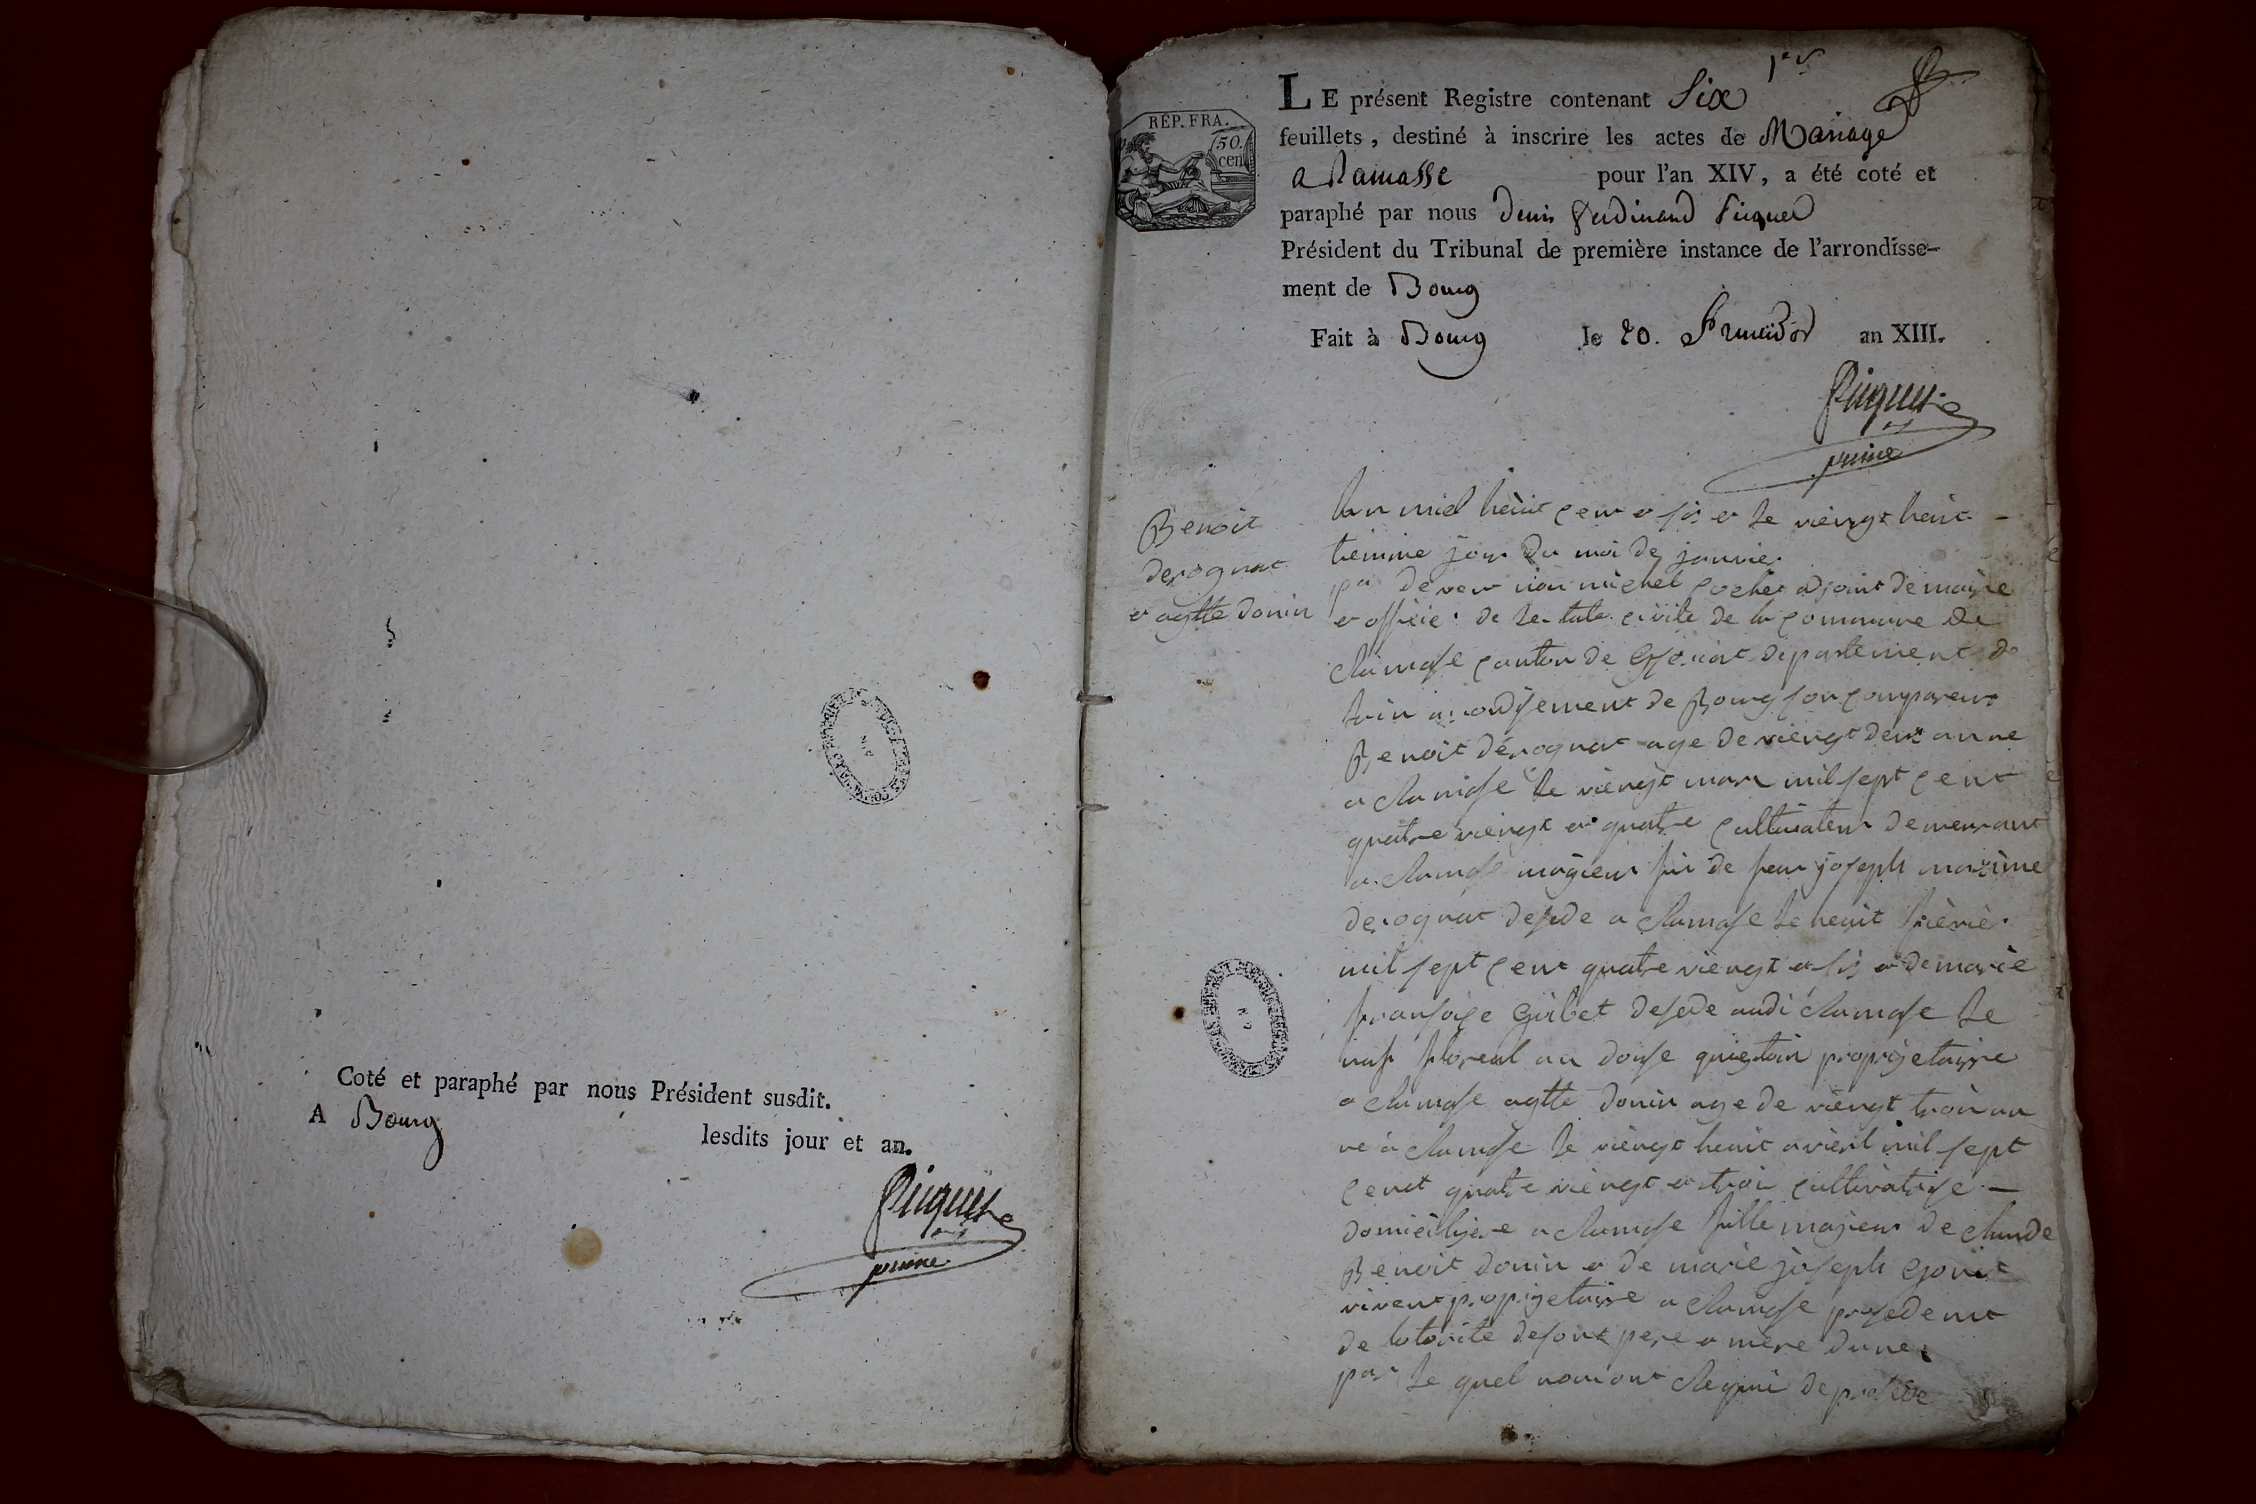 Coté et paraphé par nous Président susdit.
A Bourg lesdits jour et an.
Picquet
1er
LE présent Registre contenant Six
feuillets, destiné à inscrire les actes de Mariage
a Ramasse pour l'an XIV, a été coté et
paraphé par nous Denis Ferdinand Picquet
Président du Tribunal de première instance de l'arrondisse-
ment de Bourg
Fait à Bourg le 20. Fructidor an XIII.
Picquet
RÉP. FRA.
50.
cen
Benoit
derognat
e agtte donin
lan miel heuit cent e sis e le viengt heuit
tiemme jour du moi de janvier
par devent nou michel cochet adjoint de maire
e officié de le tate civile de la commune de
Ramase canton de departement de
lain arondisement de Bourg son comparent
Benoit dérognat age de viengt deux an ne
a Ramase le viengt mars mil sept cent
quatre viengt e quatre cultivateur demeurant
a Ramase majieur fis de feux joseph maxime
derognat desede a Ramase le heuit
mil sept cent quatre viengt e sis e de marie
fransoise Gilbet desede audi Ramase le
nuf floreal an douse proprijetaire
a Ramase agtte donin age de viengt troi an
ne a Ramase le viengt heuit avieril mil sept
cent quatre viengt e troi cultivatrise
domicilijee a Ramase fille majieur de Claude
Benoit donin e de marie joseph
vivent propijetaire a Ramase prosedent
de lotorite desont pere e mere dune
par le quel nou ont Requi de prosede